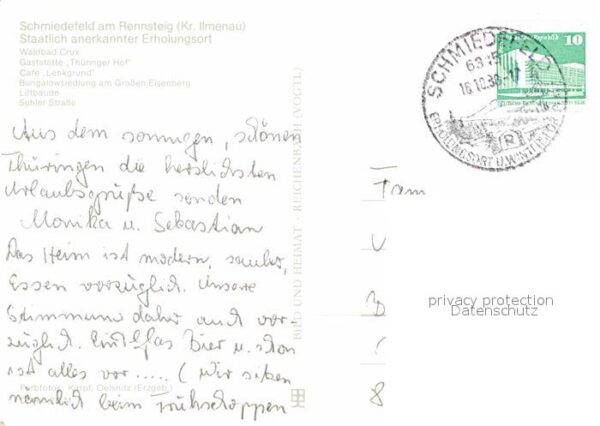 Schmiedefeld am Rennsteig (Kr. Ilmenau)
Staatlich anerkannter Erholungsort
Waldbad Crux
Gaststätte „Thüringer Hof"
Café „Lenkgrund"
Bungalowsiedlung am Großen Eisenberg
Liftbaude
Suhler Straße
10
SCHMIEDEFELD
ERHOLUNGSORT U. WINTERSPORT
Aus dem sonnigen, schönen
Thüringen die herzlichsten
Urlaubsgrüße senden
Monika u. Sebastian
Das Heim ist modern, sauber,
Essen vorzüglich. Unsere
Stimmung daher auch vor-
züglich. Ein Glas Bier u. schon
ist alles vor..... (Wir sitzen
nämlich beim Frühschoppen
Farbfotos: Karpf, Oelsnitz (Erzgeb.)
BILD UND HEIMAT REICHENBACH (VOGTL)
privacy protection
Datenschutz